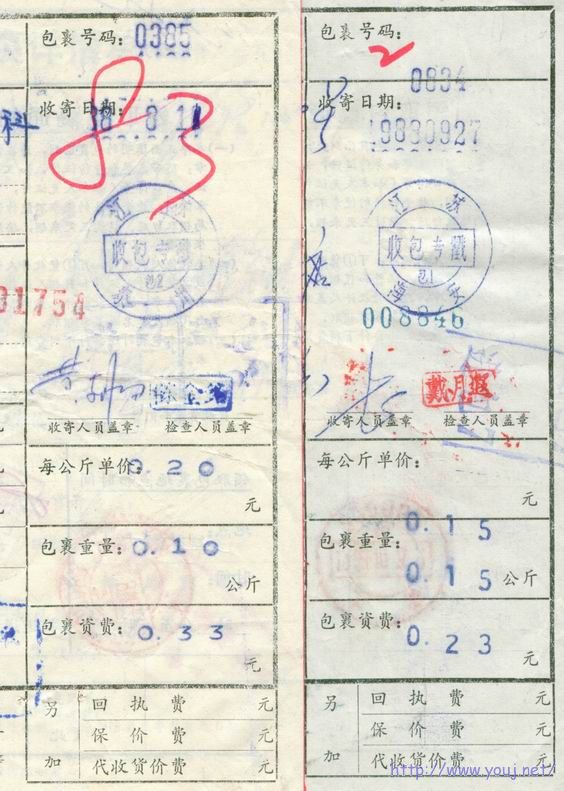 包裹号码：0385
收寄日期：
科
江
收包专戳
包2
01754
收寄人员盖章 检查人员盖章
每公斤单价：0.20
元
包裹重量：0.10
公斤
包裹资费：0.33
元
另加
回执费 元
保价费 元
代收货价费 元
包裹号码：
2
0834
收寄日期：
19830927
江苏
收包专戳
包1
008846
戴月
收寄人员盖章 检查人员盖章
每公斤单价：
元
0.15
包裹重量：
0.15 公斤
包裹资费：
0.23
元
另加
回执费 元
保价费 元
代收货价费 元
http://www.youj.net/